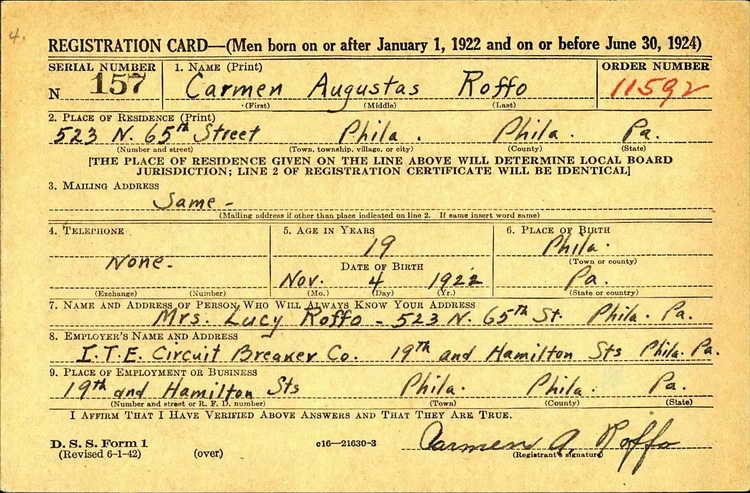 4.
REGISTRATION CARD—(Men born on or after January 1, 1922 and on or before June 30, 1924)
SERIAL NUMBER 1. NAME (Print) ORDER NUMBER
N 157 Carmen Augustas Roffo 11592
(First) (Middle) (Last)
2. PLACE OF RESIDENCE (Print)
523 N. 65th Street Phila. Phila. Pa.
(Number and street) (Town, township, village, or city) (County) (State)
[THE PLACE OF RESIDENCE GIVEN ON THE LINE ABOVE WILL DETERMINE LOCAL BOARD
JURISDICTION; LINE 2 OF REGISTRATION CERTIFICATE WILL BE IDENTICAL]
3. MAILING ADDRESS
Same -
(Mailing address if other than place indicated on line 2. If same insert word same)
4. TELEPHONE 5. AGE IN YEARS 6. PLACE OF BIRTH
19 Phila.
DATE OF BIRTH (Town or county)
None. Nov. 4 1922 Pa.
(Exchange) (Number) (Mo.) (Day) (Yr.) (State or country)
7. NAME AND ADDRESS OF PERSON WHO WILL ALWAYS KNOW YOUR ADDRESS
Mrs. Lucy Roffo - 523 N. 65th St. Phila. Pa.
8. EMPLOYER'S NAME AND ADDRESS
I.T.E. Circuit Breaker Co. 19th and Hamilton Sts Phila. Pa.
9. PLACE OF EMPLOYMENT OR BUSINESS
19th and Hamilton Sts Phila. Phila. Pa.
(Number and street or R. F. D. number) (Town) (County) (State)
I AFFIRM THAT I HAVE VERIFIED ABOVE ANSWERS AND THAT THEY ARE TRUE.
D. S. S. Form 1
(Revised 6-1-42) (over) c16—21630-3 Carmen A. Roffo
(Registrant's signature)